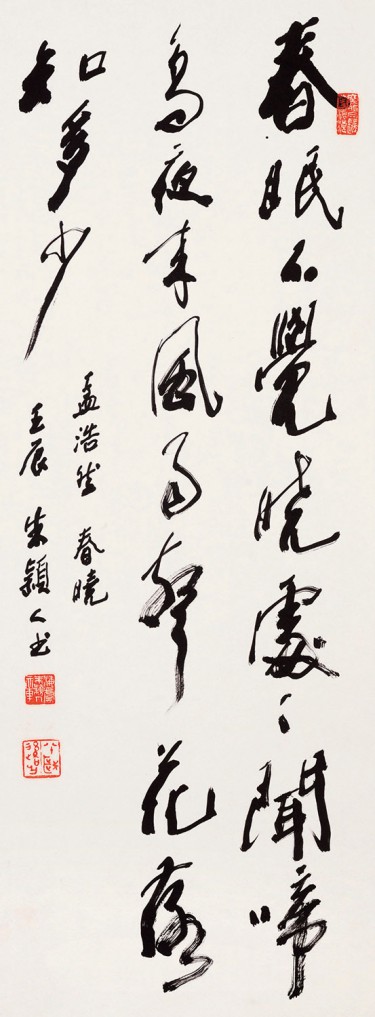 春眠不覺曉處〻聞啼
鳥夜来風雨聲花落
知多少
孟浩然 春曉
壬辰 朱穎人书